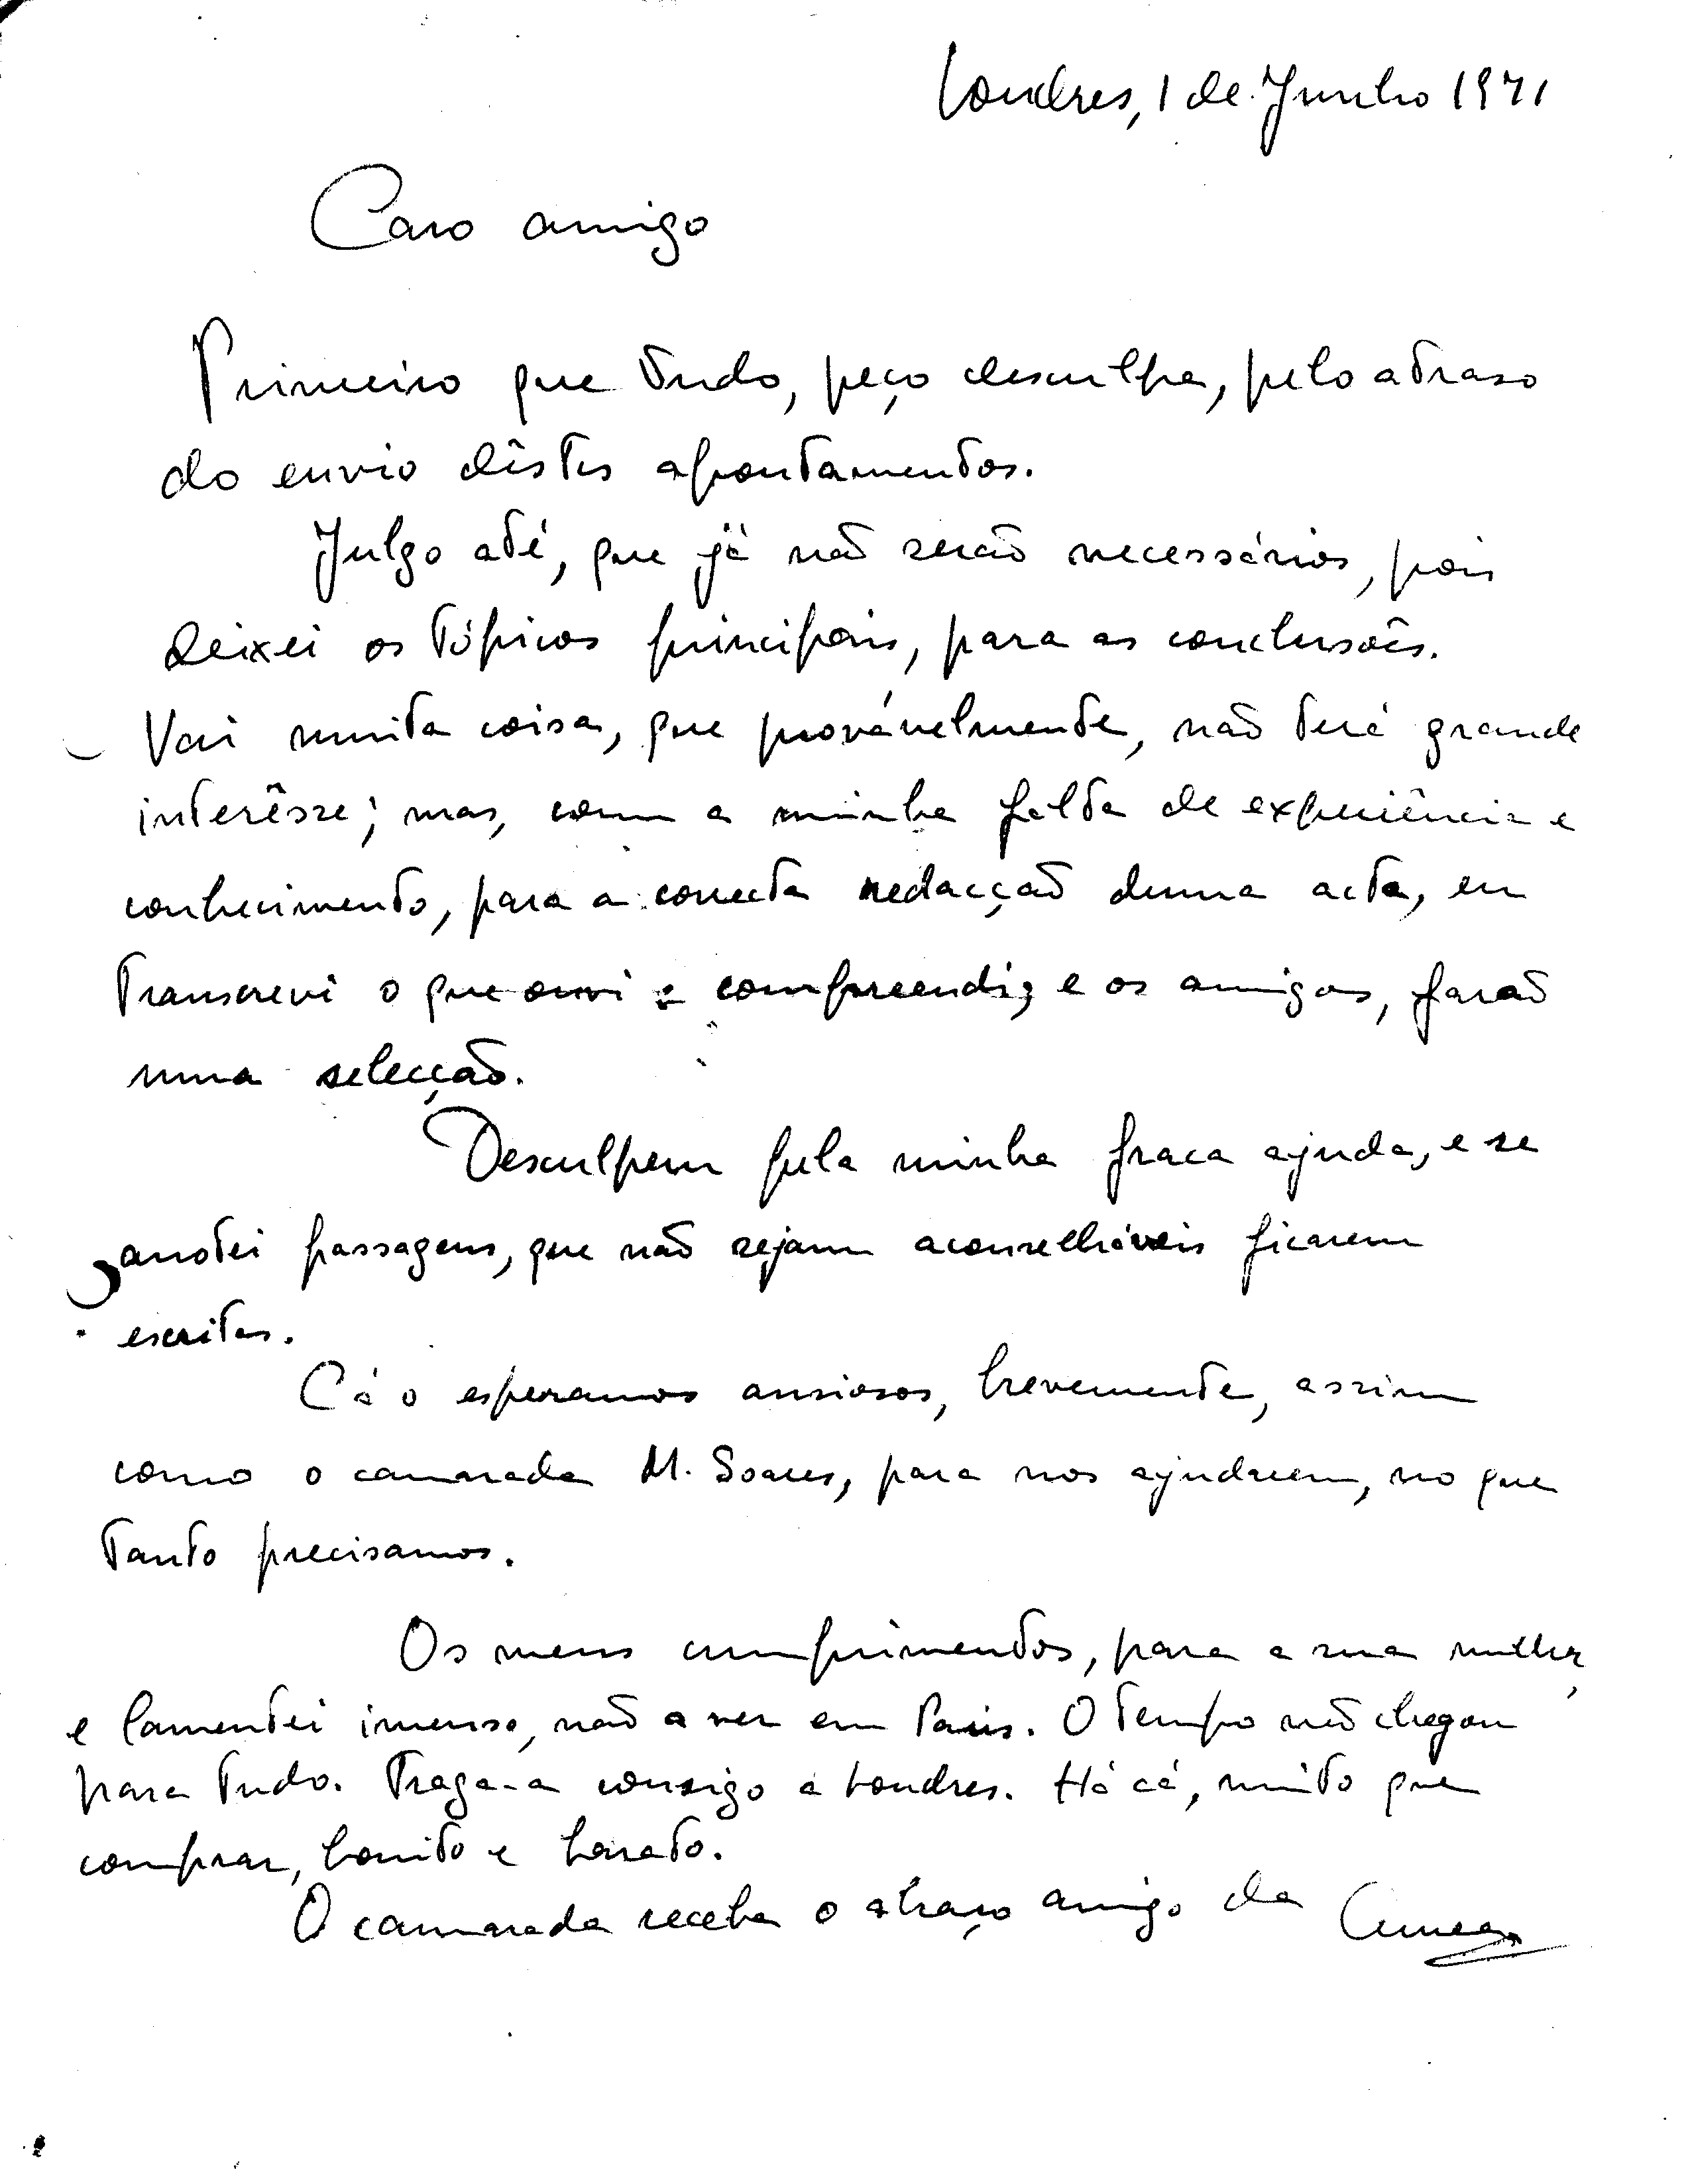 Londres, 1 de Junho 1971
Caro amigo
Primeiro que tudo, peço desculpa, pelo atraso
do envio dêstes apontamentos.
Julgo até, que já não serão necessários, pois
deixei os tópicos principais, para as conclusões.
Vai muita coisa, que provávelmente, não terá grande
interêsse; mas, com a minha falta de experiência e
conhecimento, para a correcta redacção duma acta, eu
transcrevi o que ouvi e compreendi; e os amigos, farão
uma selecção.
Desculpem pela minha fraca ajuda, e se
anotei passagens, que não sejam aconselháveis ficarem
escritas.
Cá o esperamos ansiosos, brevemente, assim
como o camarada M. Soares, para nos ajudarem, no que
tanto precisamos.
Os meus cumprimentos, para a sua mulher,
e lamentei imenso, não a ver em Paris. O tempo não chegou
para tudo. Traga-a consigo a Londres. Há cá, muito que
comprar, bonito e barato.
O camarada receba o abraço amigo da